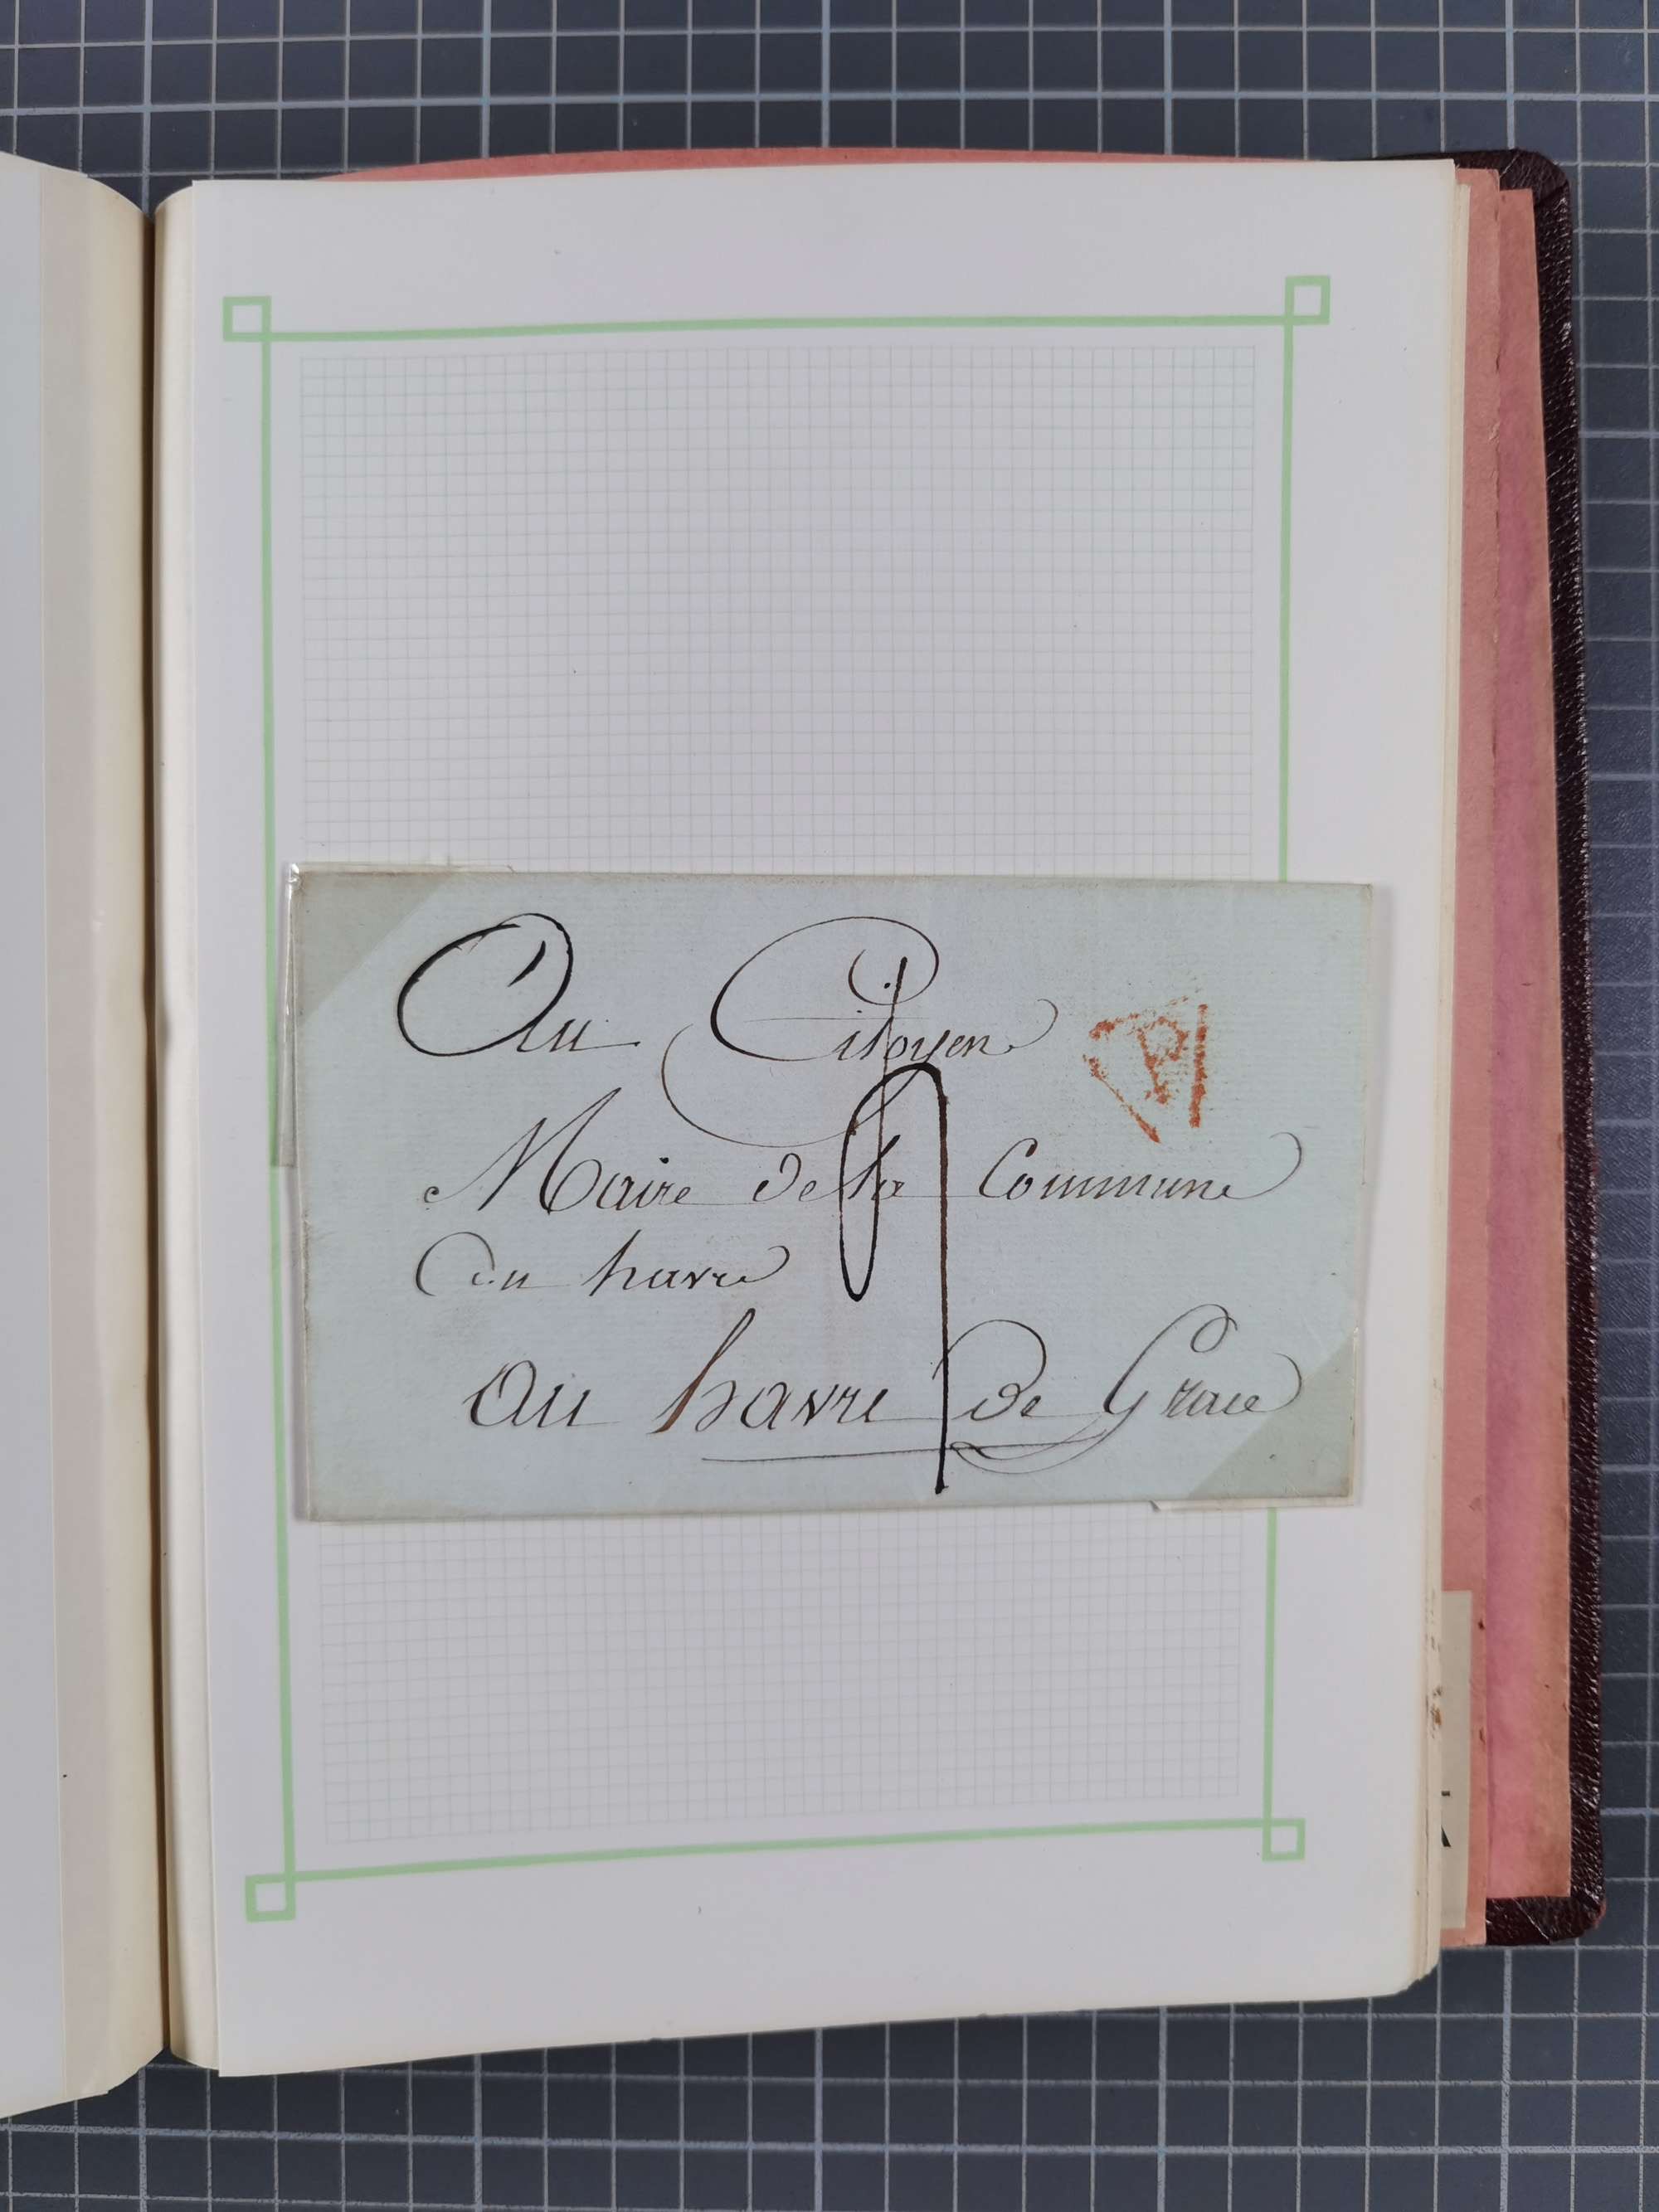 Au Citoyen
P
Maire de la Commune
Du havre
au havre De Grace